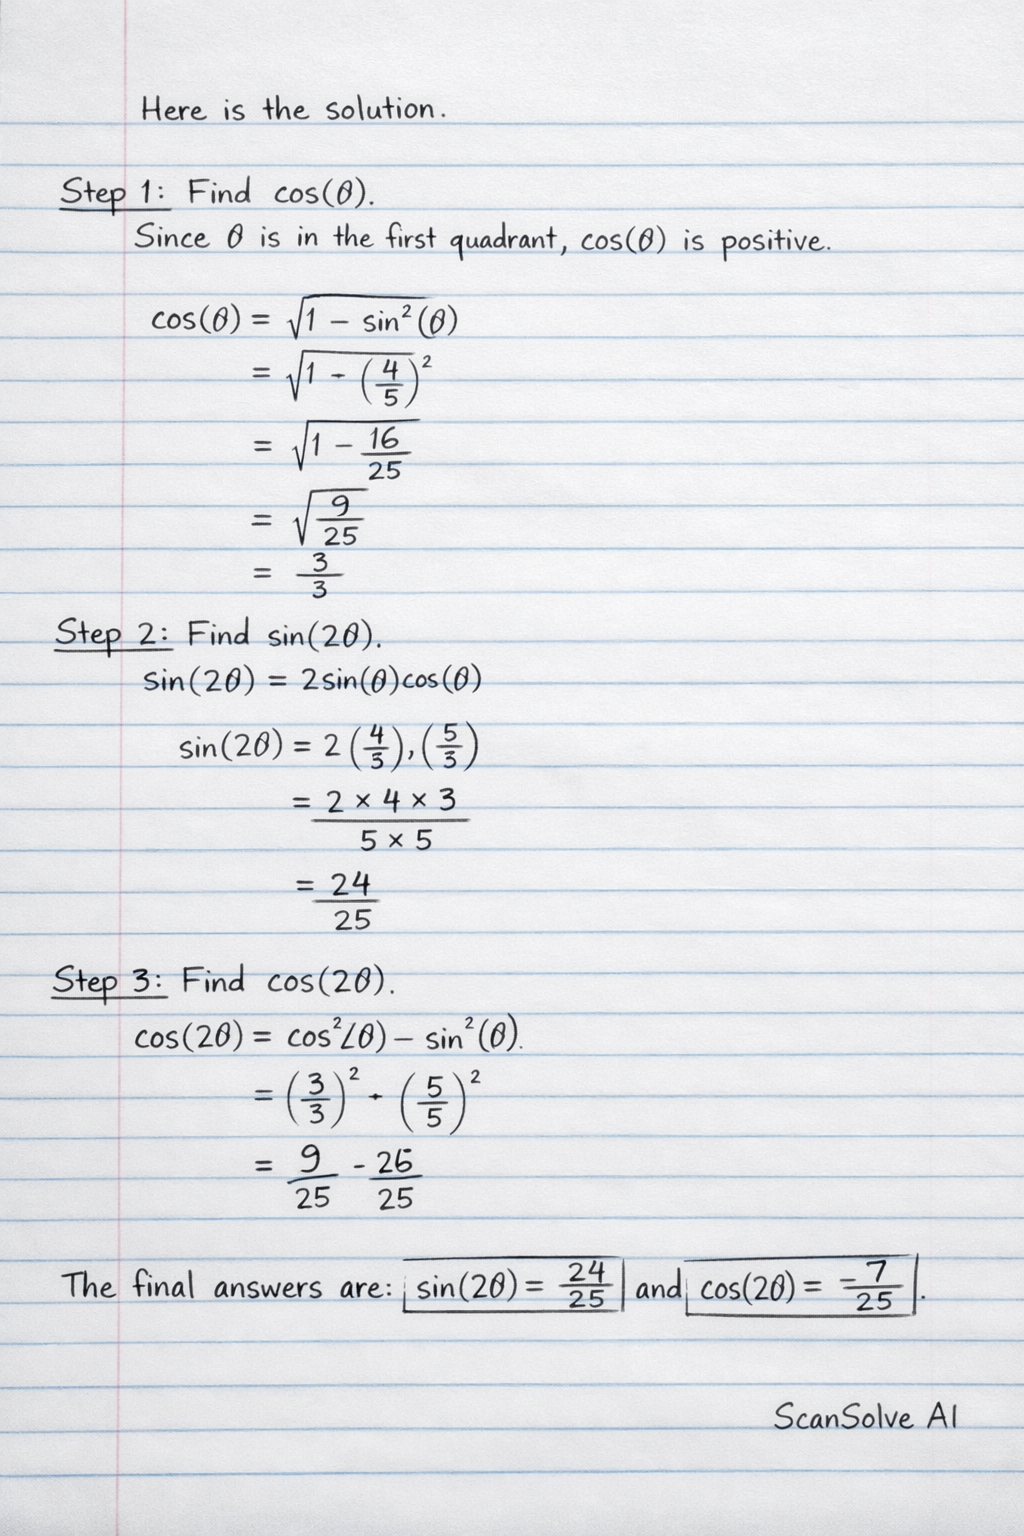 Here is the solution.
Step 1: Find cos(θ).
Since θ is in the first quadrant, cos(θ) is positive.
cos(θ) = √1 − sin²(θ)
= √1 - (4/5)²
= √1 − 16/25
= √9/25
= 3/3
Step 2: Find sin(2θ).
sin(2θ) = 2sin(θ)cos(θ)
sin(2θ) = 2 (4/3), (5/3)
= 2 × 4 × 3 / 5 × 5
= 24/25
Step 3: Find cos(2θ).
cos(2θ) = cos²(θ) − sin²(θ).
= (3/3)² - (5/5)²
= 9/25 - 26/25
The final answers are: sin(2θ) = 24/25 and cos(2θ) = -7/25.
ScanSolve AI